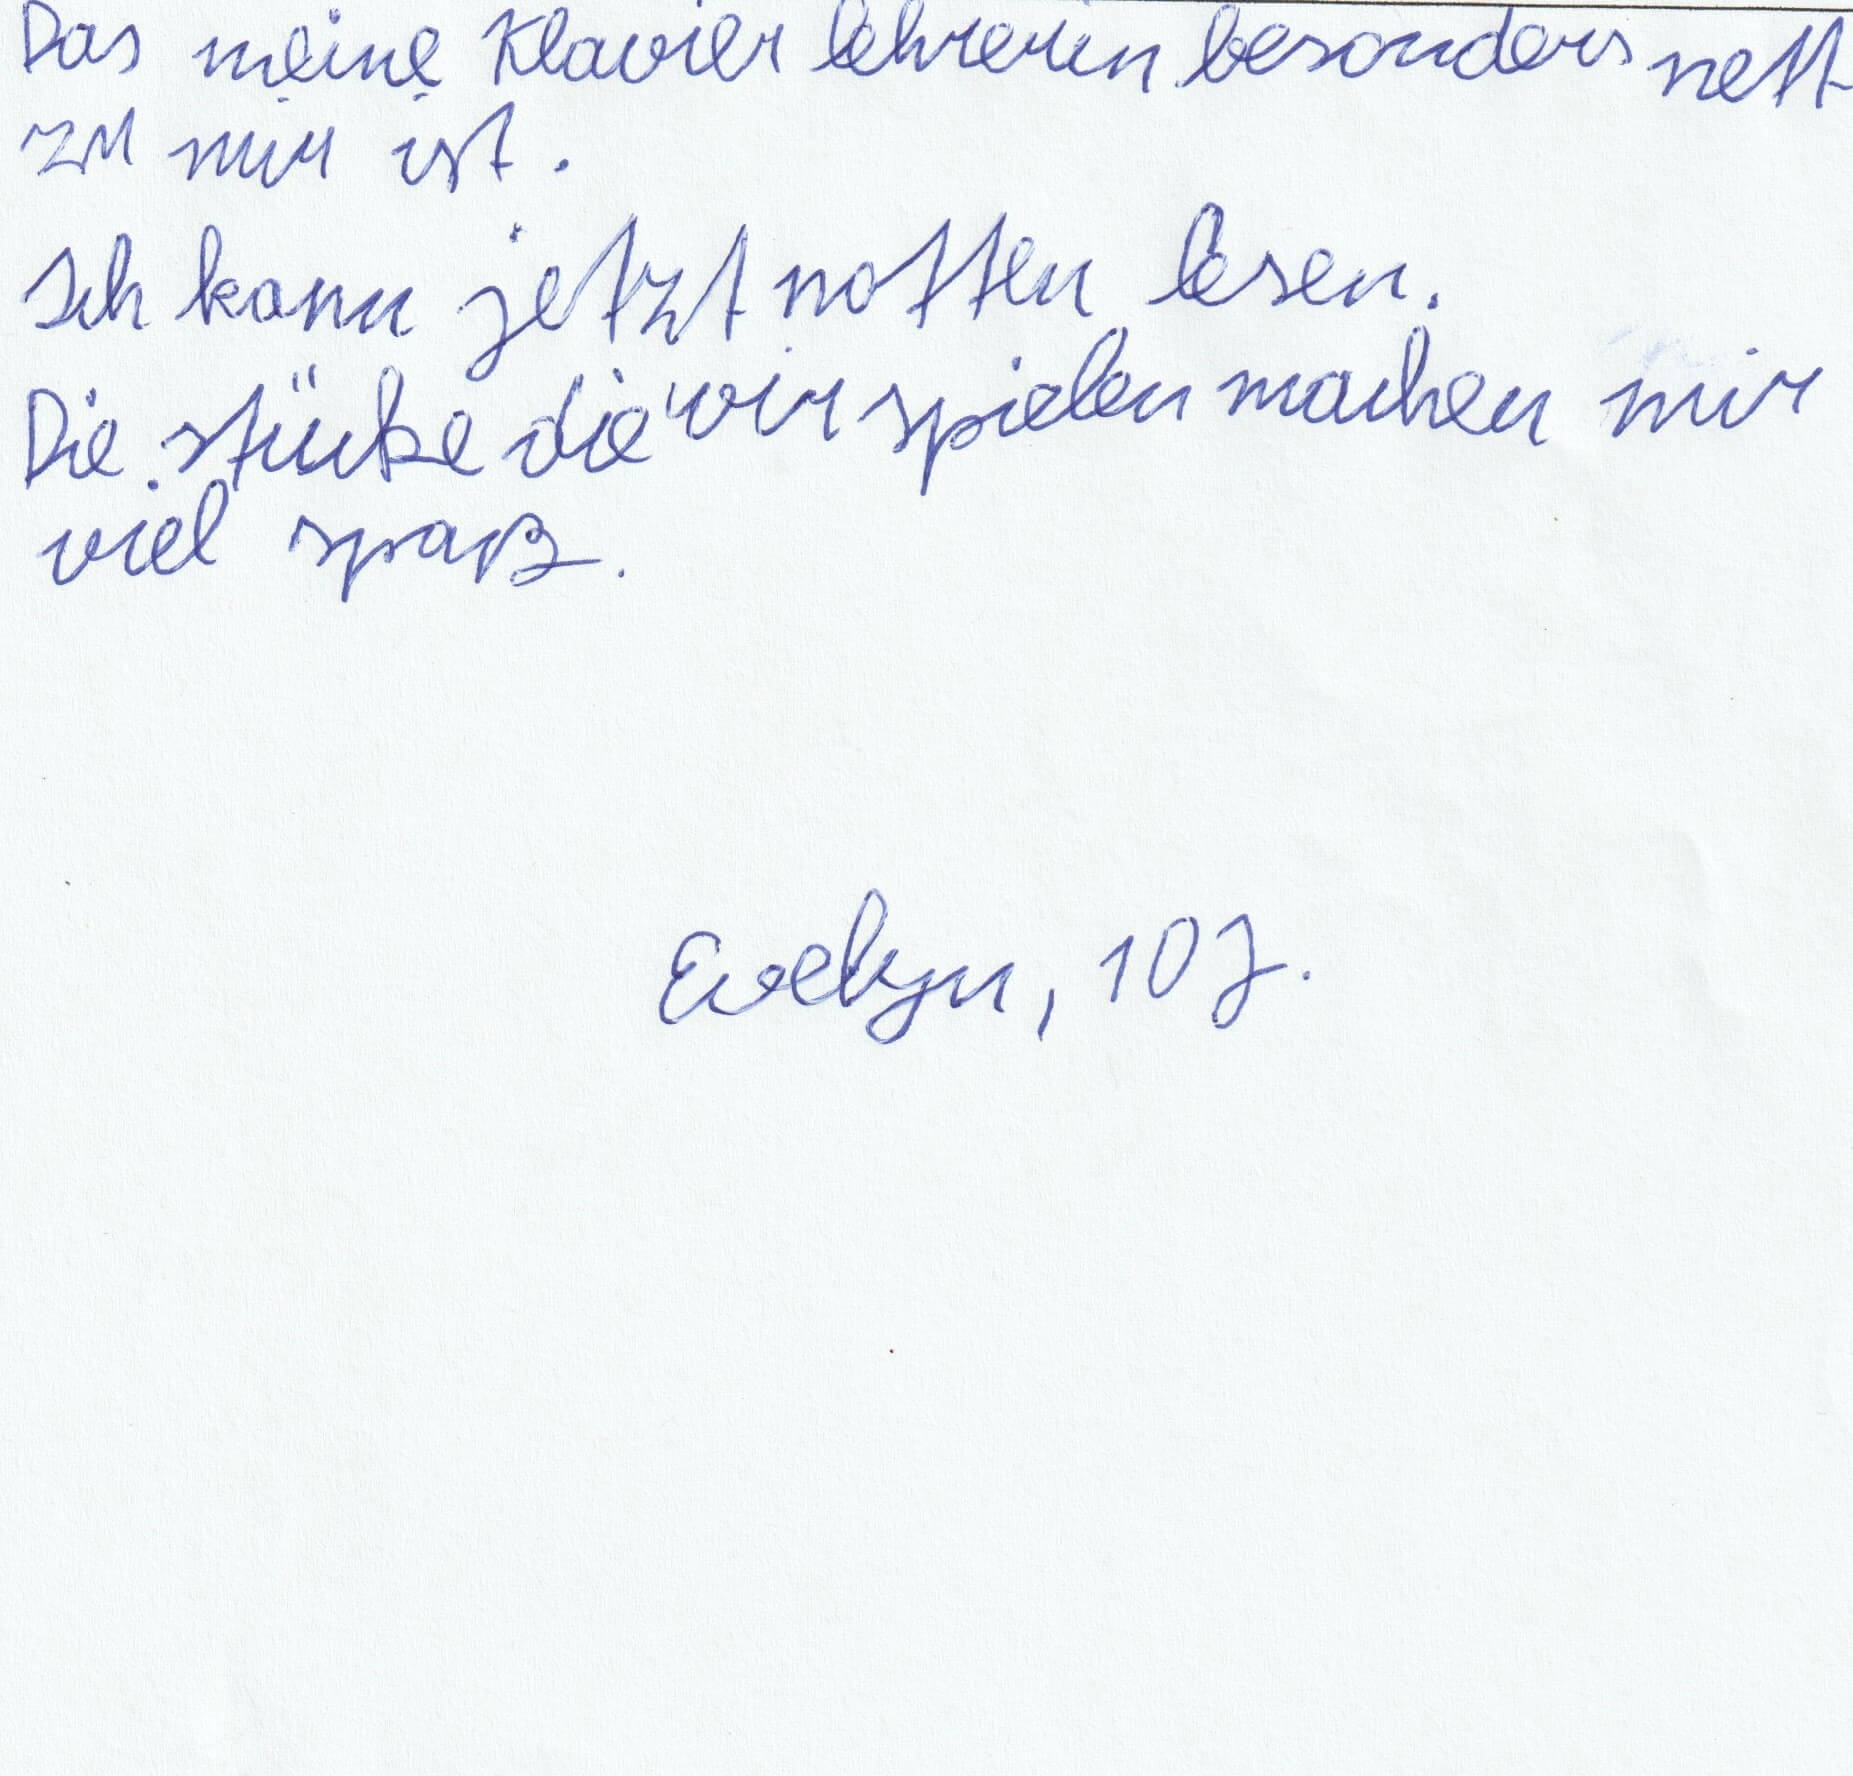 Das meine Klavier lehrerin besonders nett
zu mir ist.
Ich kann jetzt notten lesen.
Die stücke die wir spielen machen mir
viel spaß.
Evelyn, 10 J.